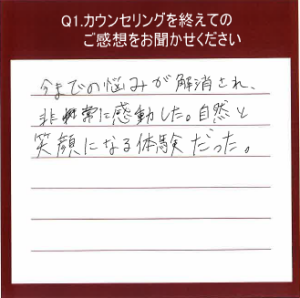 Q1.カウンセリングを終えての
ご感想をお聞かせください
今までの悩みが解消され、
非常に感動した。自然と
笑顔になる体験だった。